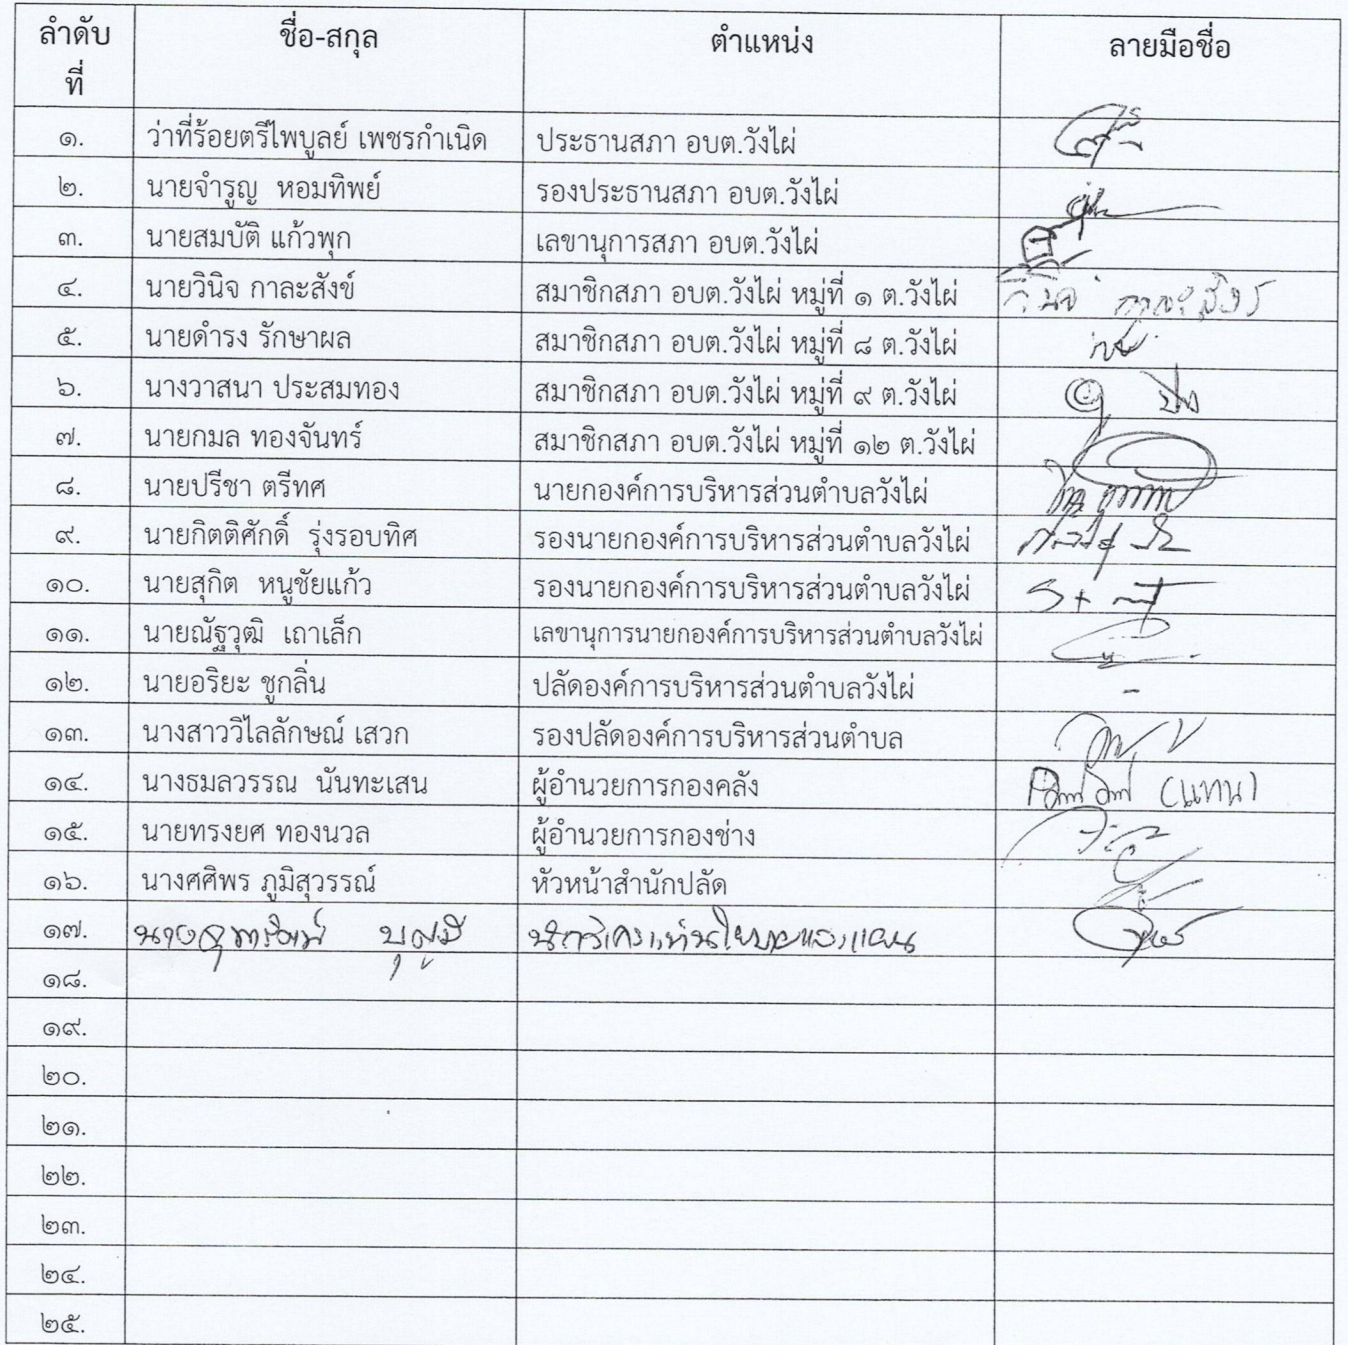 ลำดับที่ ชื่อ-สกุล ตำแหน่ง ลายมือชื่อ
๑. ว่าที่ร้อยตรีไพบูลย์ เพชรกำเนิด ประธานสภา อบต.วังไผ่
๒. นายจำรูญ หอมทิพย์ รองประธานสภา อบต.วังไผ่
๓. นายสมบัติ แก้วพุก เลขานุการสภา อบต.วังไผ่
๔. นายวินิจ กาละสังข์ สมาชิกสภา อบต.วังไผ่ หมู่ที่ ๑ ต.วังไผ่
๕. นายดำรง รักษาผล สมาชิกสภา อบต.วังไผ่ หมู่ที่ ๘ ต.วังไผ่
๖. นางวาสนา ประสมทอง สมาชิกสภา อบต.วังไผ่ หมู่ที่ ๙ ต.วังไผ่
๗. นายกมล ทองจันทร์ สมาชิกสภา อบต.วังไผ่ หมู่ที่ ๑๒ ต.วังไผ่
๘. นายปรีชา ตรีทศ นายกองค์การบริหารส่วนตำบลวังไผ่
๙. นายกิตติศักดิ์ รุ่งรอบทิศ รองนายกองค์การบริหารส่วนตำบลวังไผ่
๑๐. นายสุกิต หนูชัยแก้ว รองนายกองค์การบริหารส่วนตำบลวังไผ่
๑๑. นายณัฐวุฒิ เถาเล็ก เลขานุการนายกองค์การบริหารส่วนตำบลวังไผ่
๑๒. นายอริยะ ชูกลิ่น ปลัดองค์การบริหารส่วนตำบลวังไผ่ -
๑๓. นางสาววิไลลักษณ์ เสวก รองปลัดองค์การบริหารส่วนตำบล
๑๔. นางธมลวรรณ นันทะเสน ผู้อำนวยการกองคลัง (แทน)
๑๕. นายทรงยศ ทองนวล ผู้อำนวยการกองช่าง
๑๖. นางศศิพร ภูมิสุวรรณ์ หัวหน้าสำนักปลัด
๑๗. บุญมี
๑๘.
๑๙.
๒๐.
๒๑.
๒๒.
๒๓.
๒๔.
๒๕.